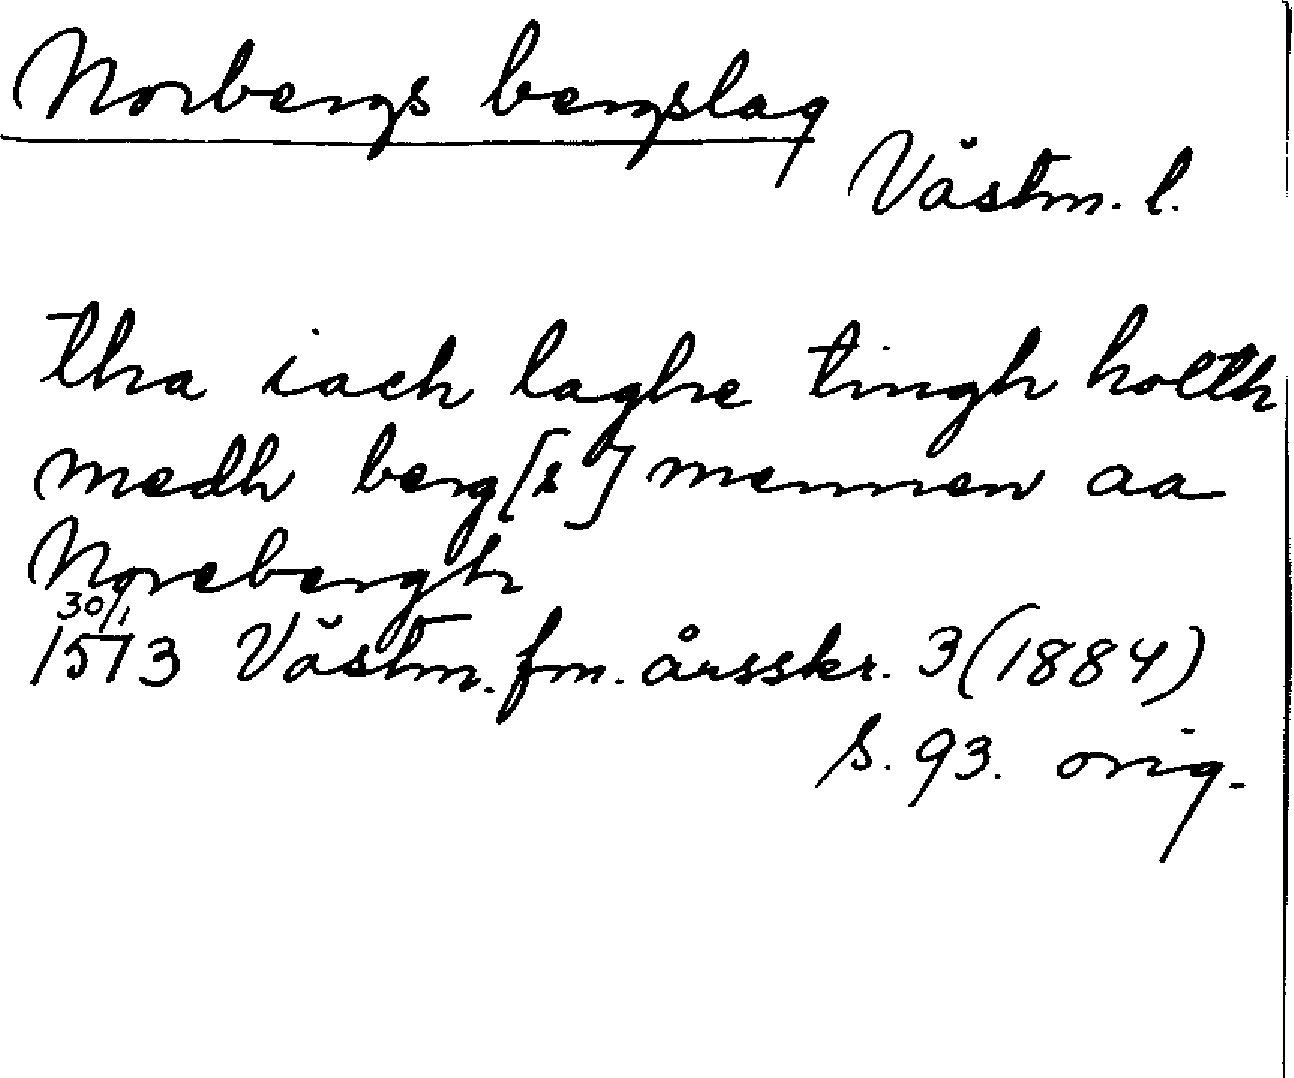 Norbergs bergslag
Västm. l.
tha iach laghe tingh holth
medh berg[s]mennen aa
Norebergh
30/1
1513 Västm. fm. årsskr. 3 (1884)
s. 93. orig.